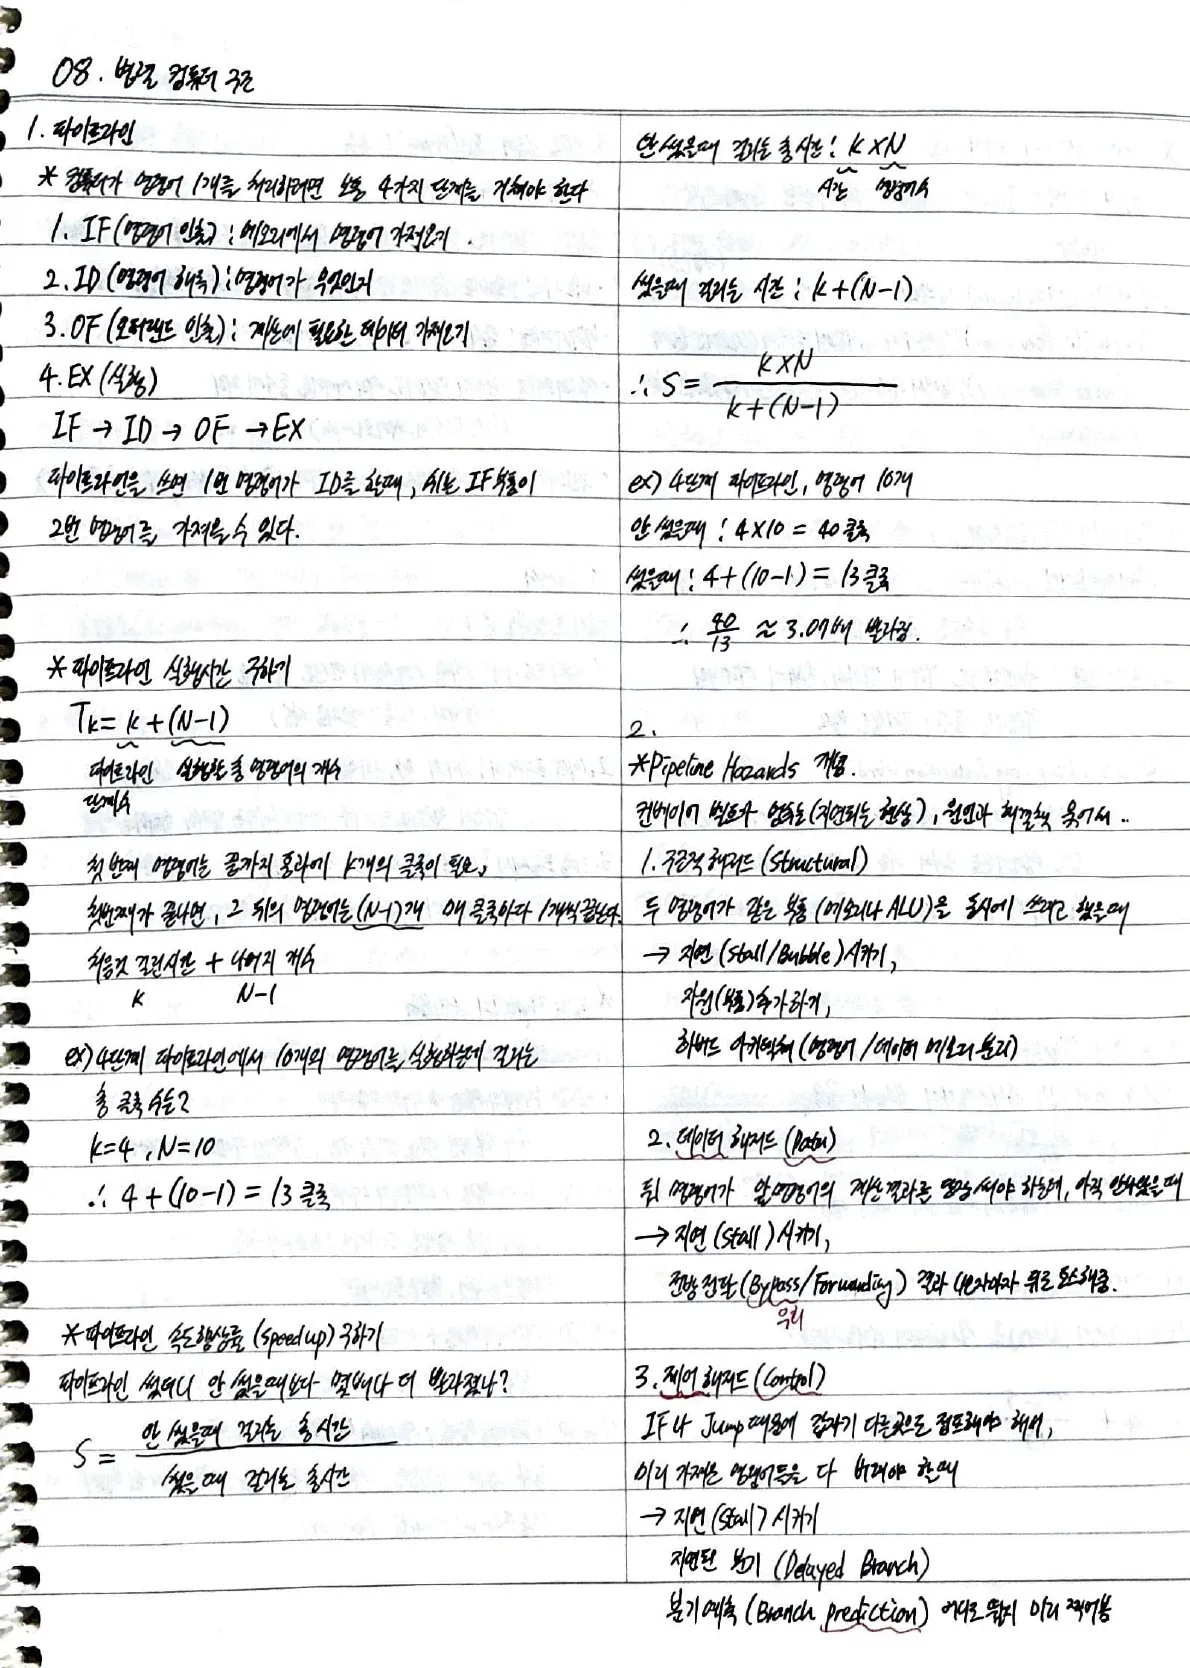 08. 병렬 컴퓨터 구조
1. 파이프라인
* 컴퓨터가 명령어 1개를 처리하려면 보통 4가지 단계를 거쳐야 한다
1. IF (명령어 인출) : 메모리에서 명령어 가져오기.
2. ID (명령어 해독) : 명령어가 무엇인지
3. OF (오퍼랜드 인출) : 계산에 필요한 데이터 가져오기
4. EX (실행)
IF → ID → OF → EX
파이프라인을 쓰면 1번 명령어가 ID를 할때, 쉬는 IF부품이
2번 명령어를 가져올 수 있다.
* 파이프라인 실행시간 구하기
Tk = k + (N-1)
파이프라인 실행할 총 명령어의 개수
단계수
첫번째 명령어는 끝까지 통과에 k개의 클록이 필요,
첫번째가 끝나면, 그 뒤의 명령어는 (N-1)개 매 클록마다 1개씩 끝난다.
처음것 걸린시간 + 나머지 개수
k N-1
ex) 4단계 파이프라인에서 10개의 명령어를 실행하는데 걸리는
총 클록 수는?
k=4, N=10
∴ 4+(10-1) = 13 클록
* 파이프라인 속도향상률 (speed up) 구하기
파이프라인 썼더니 안 썼을때보다 몇배나 더 빨라졌나?
안 썼을때 걸리는 총시간
S =
썼을때 걸리는 총시간
안 썼을때 걸리는 총시간 : k×N
시간 명령어수
썼을때 걸리는 시간 : k+(N-1)
k×N
∴ S =
k+(N-1)
ex) 4단계 파이프라인, 명령어 10개
안 썼을때 : 4×10 = 40 클록
썼을때 : 4+(10-1) = 13 클록
∴ 40/13 ≈ 3.07배 빨라짐.
2.
* Pipeline Hazards 개념.
컨베이어 벨트가 멈추는 (지연되는 현상), 원인과 해결책 엮어서..
1. 구조적 해저드 (Structural)
두 명령어가 같은 부품 (메모리나 ALU)을 동시에 쓰려고 했을때
→ 지연 (Stall/Bubble) 시키기,
자원(부품)추가하기,
하버드 아키텍쳐 (명령어 / 데이터 메모리 분리)
2. 데이터 해저드 (Data)
뒤 명령어가 앞명령어의 계산결과를 써야 하는데, 아직 안나왔을때
→ 지연 (Stall) 시키기,
전방전달 (Bypass/Forwarding) 결과 나오자마자 뒤로 토스해줌.
우회
3. 제어 해저드 (Control)
IF나 Jump때문에 갑자기 다른곳으로 점프해야 해서,
미리 가져온 명령어들을 다 버려야 할때
→ 지연 (Stall) 시키기
지연된 분기 (Delayed Branch)
분기예측 (Branch prediction) 어디로 뛸지 미리 찍어봄